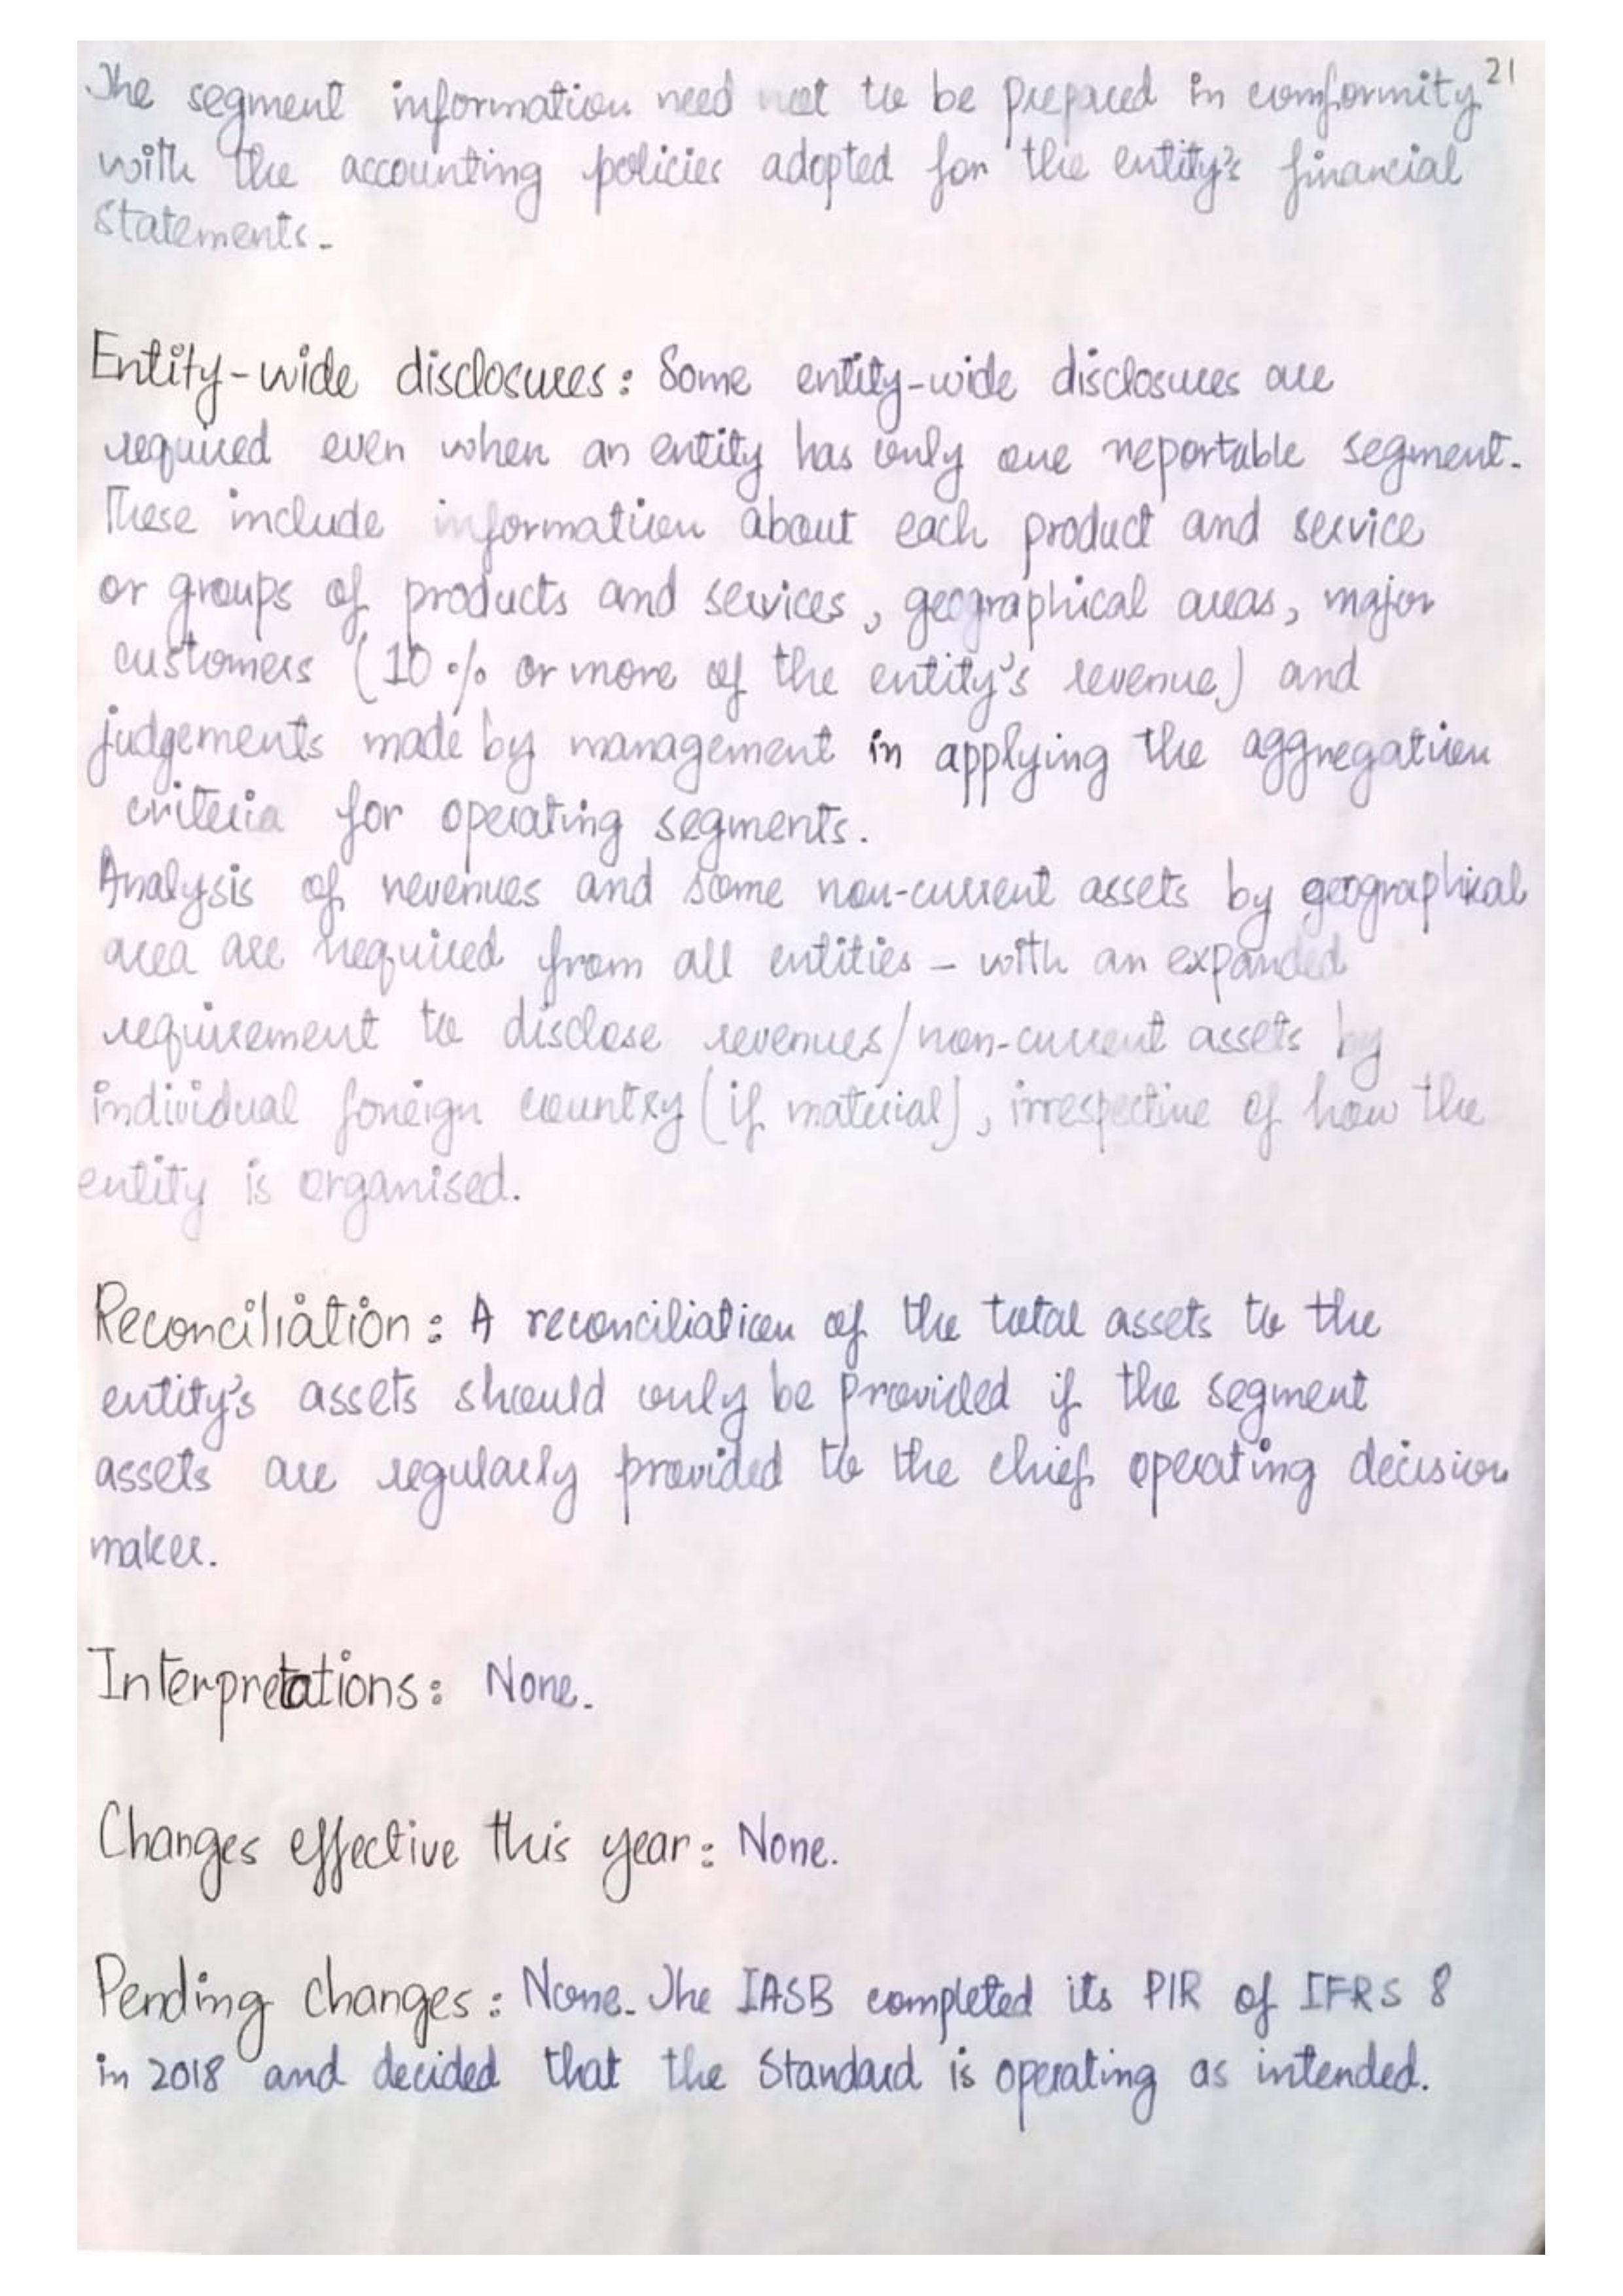 21
The segment information need not to be prepared in comformity
with the accounting policies adopted for the entity's financial
statements.
Entity-wide disclosures: Some entity-wide disclosures are
required even when an entity has only one reportable segment.
These include information about each product and service
or groups of products and services, geographical areas, major
customers (10% or more of the entity's revenue) and
judgements made by management in applying the aggregation
criteria for operating segments.
Analysis of revenues and some non-current assets by geographical
area are required from all entities - with an expanded
requirement to disclose revenues/non-current assets by
individual foreign country (if material), irrespective of how the
entity is organised.
Reconciliation: A reconciliation of the total assets to the
entity's assets should only be provided if the segment
assets are regularly provided to the chief operating decision
maker.
Interpretations: None.
Changes effective this year: None.
Pending changes: None. The IASB completed its PIR of IFRS 8
in 2018 and decided that the Standard is operating as intended.